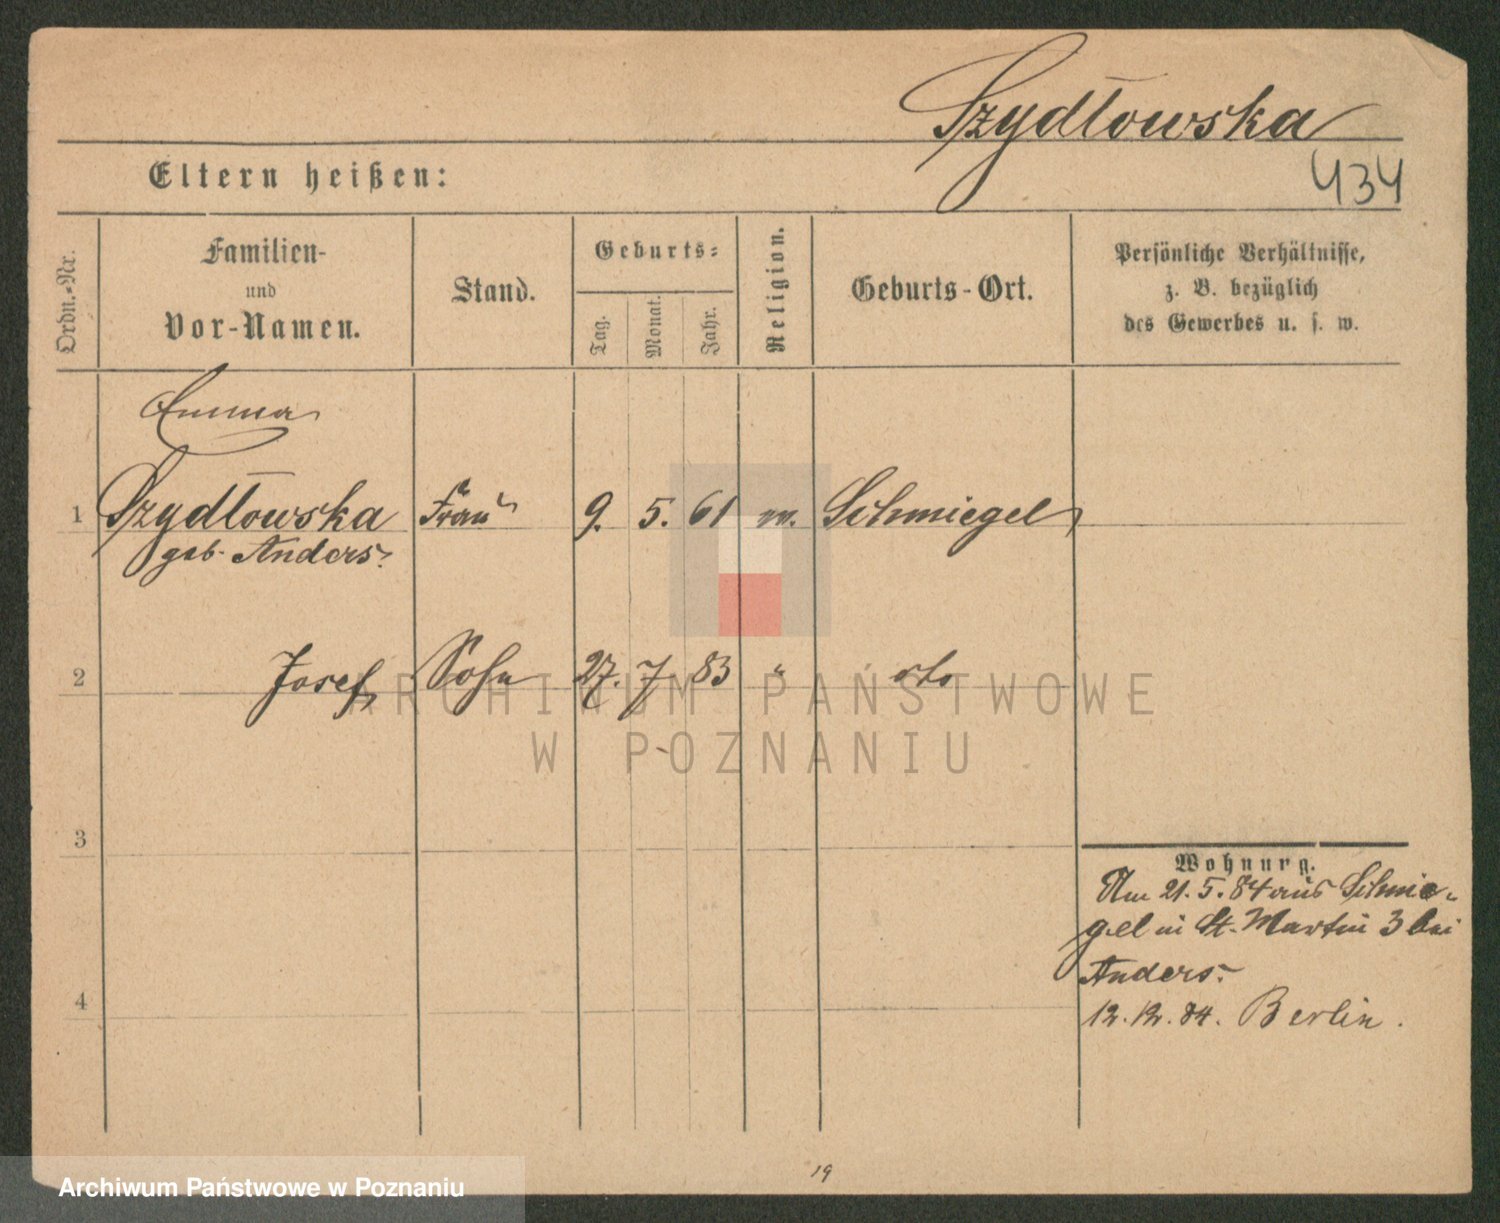 Szydłowska
434
Eltern heißen:
Ordn.-Nr.
Familien-
und
Vor-Namen.
Stand.
Geburts-
Tag.
Monat.
Jahr.
Religion.
Geburts-Ort.
Persönliche Verhältnisse,
z. B. bezüglich
des Gewerbes u. s. w.
Emma
1 Szydłowska Frau 9. 5. 61 Schmiegel
geb. Anders.
2 Josef Sohn 27. 7 83 " dto
3
4
Wohnung.
Am 21.5.84 aus Schmie-
gel in St. Martin 3 bei
Anders.
12.12.84. Berlin.
19
ARCHIWUM PAŃSTWOWE
W POZNANIU
Archiwum Państwowe w Poznaniu